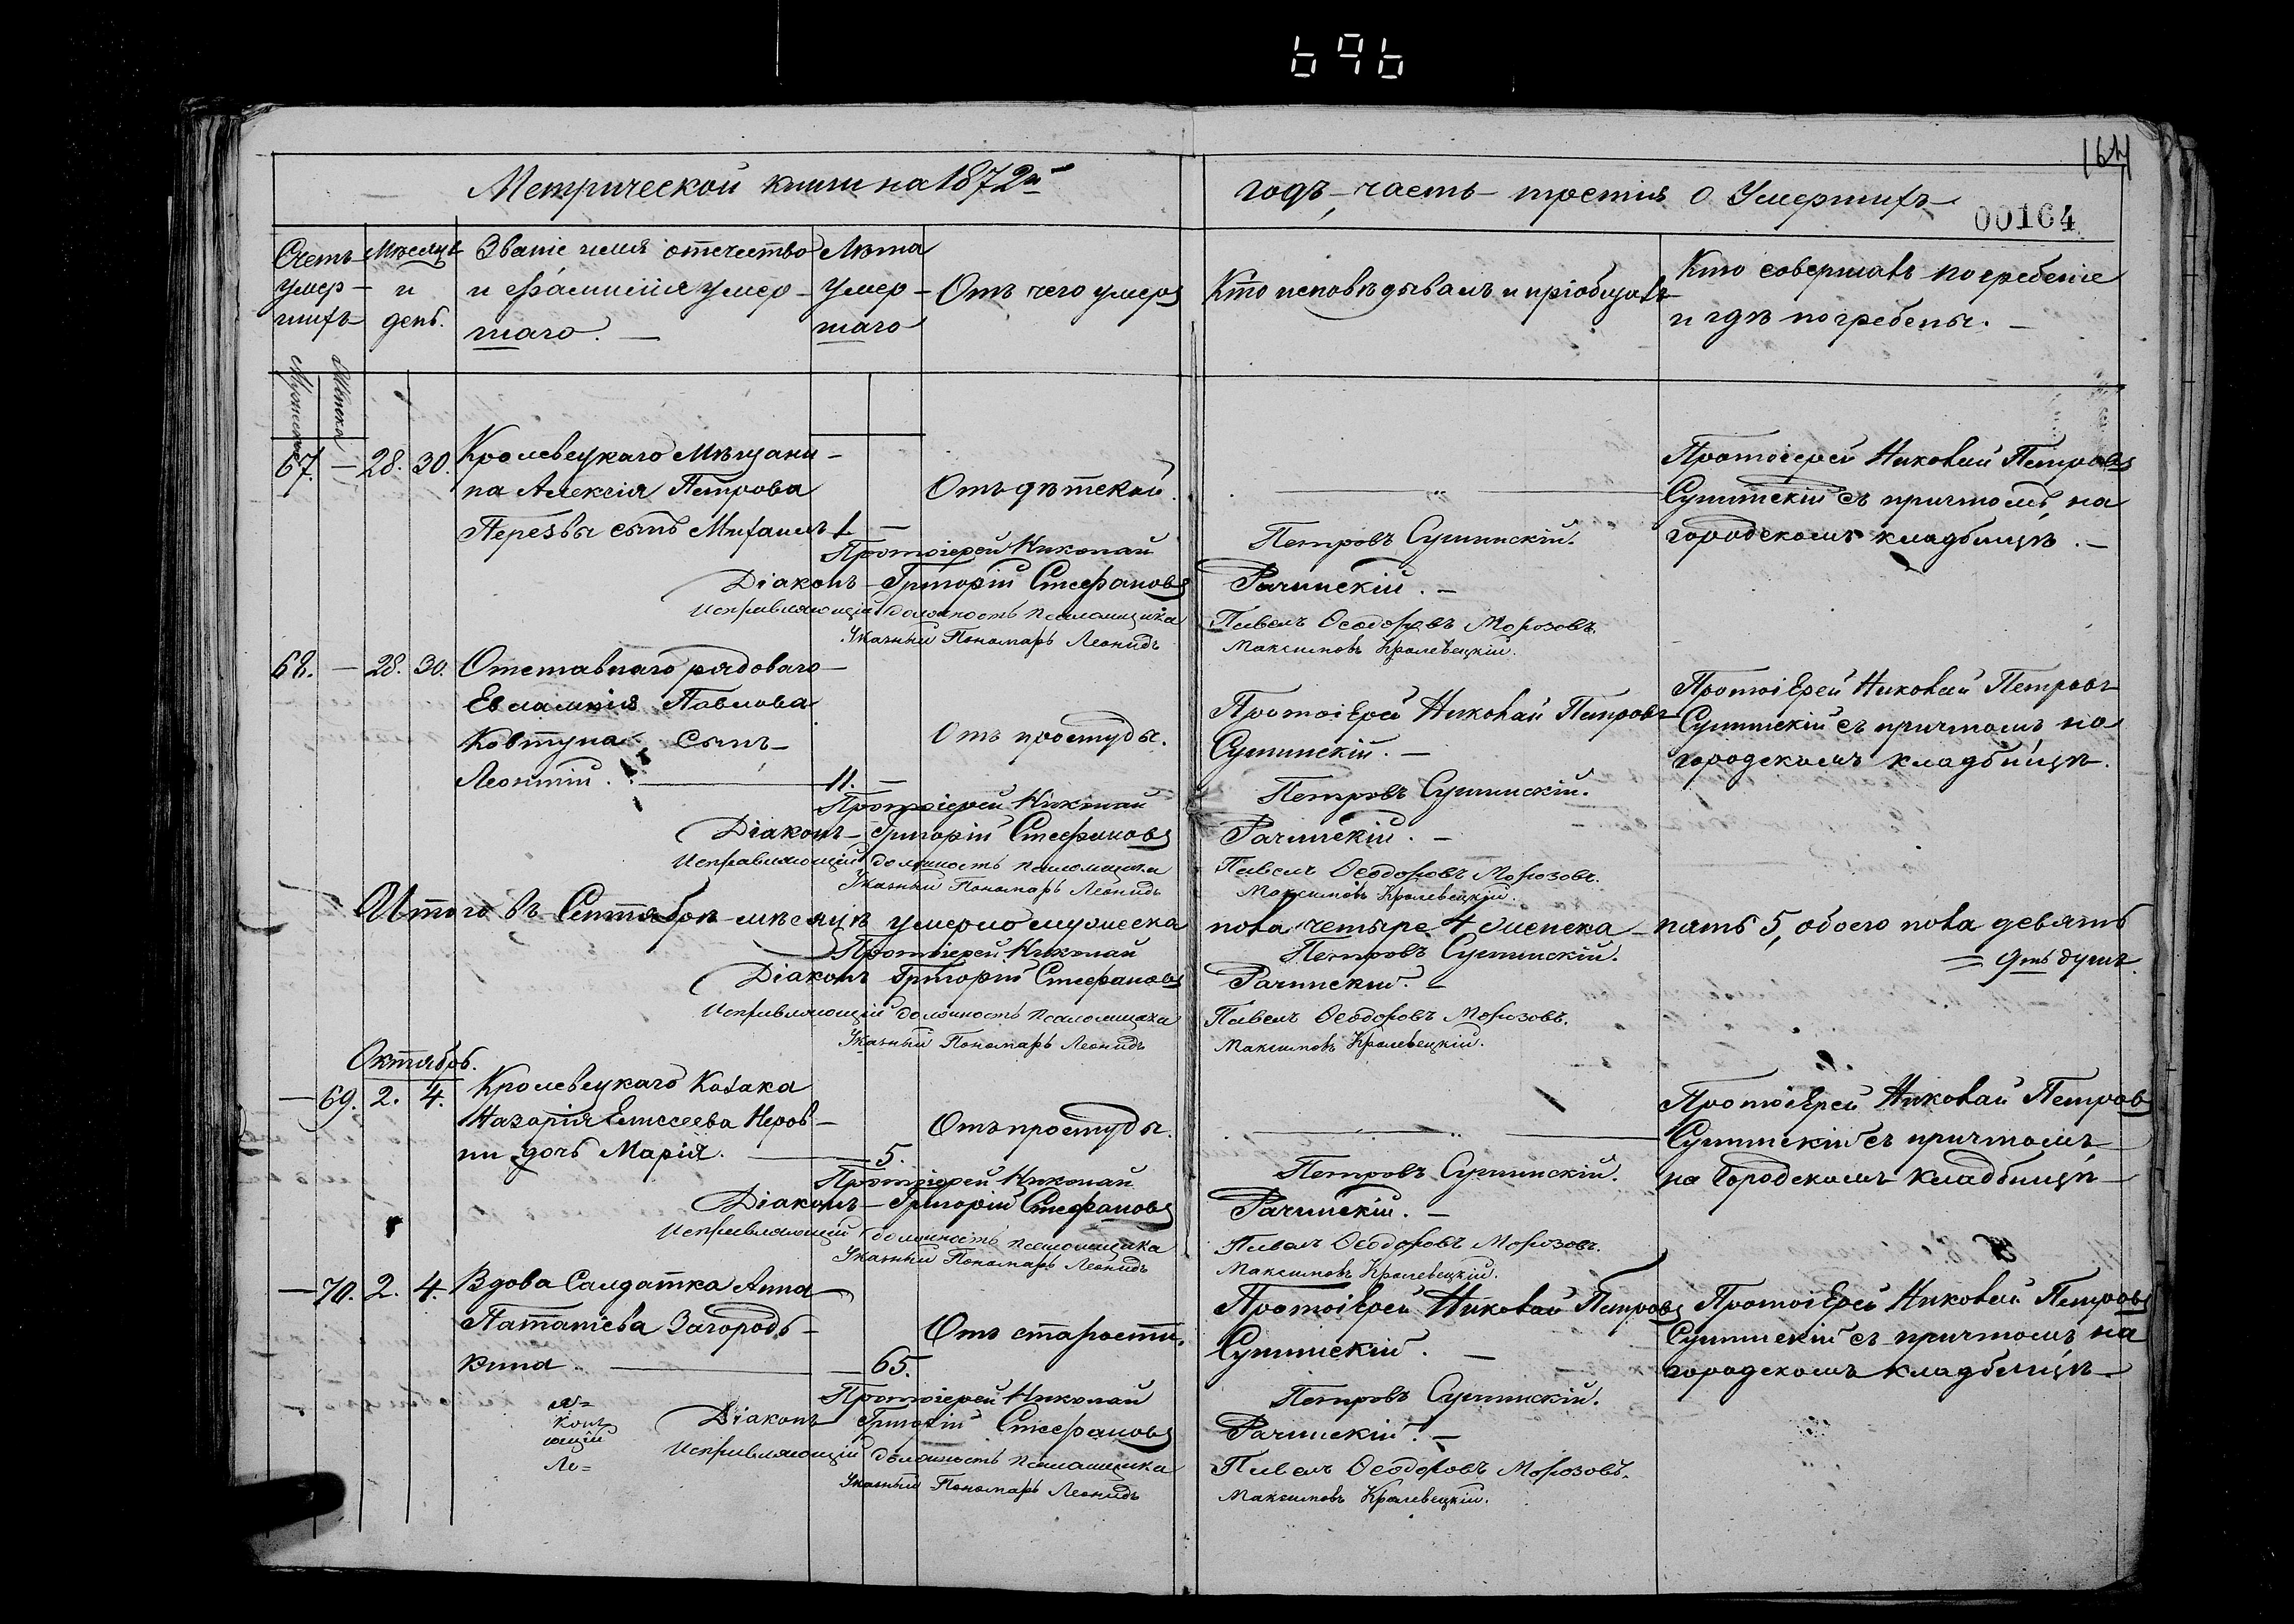 696
164
Метрической книги на 1872й
годъ, часть третія о Умершихъ
00164
Счетъ умер-шихъ
Мужеска
Женска
Мѣсяцъ и день.
Званіе имя отчество
и фамилія умер-
шаго.
Лѣта
умер-
шаго
Отъ чего умеръ
Кто исповѣдывалъ и пріобщалъ
Кто совершалъ погребеніе
и гдѣ погребены.
67. — 28. 30.
Кролевецкаго Мѣщани-
на Алексія Петрова
Перезвы сынъ Михаилъ
1 —
Отъ дѣтской.
— „ —
Протоіерей Николай Петровъ
Сушинскій съ причтомъ, на
городскомъ кладбищѣ. —
Протоіерей Николай Петровъ Сушинскій.
Діаконъ Григорій Стефановъ Рачинскій. —
Исправляющій должность псаломщика Павелъ Ѳеодоровъ Морозовъ.
Указный Пономарь Леонидъ Максимовъ Кролевецкій.
68. — 28. 30.
Отставнаго рядоваго
Евлампія Павлова
Ковтуна Сынъ
Леонтій.
11. —
Отъ простуды.
Протоіерей Николай Петровъ
Сушинскій. —
Протоіерей Николай Петровъ
Сушинскій съ причтомъ на
городскомъ кладбищѣ.
Протоіерей Николай Петровъ Сушинскій.
Діаконъ — Григорій Стефановъ Рачинскій. —
Исправляющій должность псаломщика Павелъ Ѳеодоровъ Морозовъ.
Указный Пономарь Леонидъ Максимовъ Кролевецкій.
Итого въ Сентябрѣ мѣсяцѣ умерло мужеска пола четыре 4 женска пять 5, обоего пола девять
= 9ть душъ.
Протоіерей Николай Петровъ Сушинскій.
Діаконъ Григорій Стефановъ Рачинскій. —
Исправляющій должность псаломщика Павелъ Ѳеодоровъ Морозовъ.
Указный Пономарь Леонидъ Максимовъ Кролевецкій.
Октябрь.
— 69. 2. 4.
Кролевецкаго Козака
Назарія Елисеева Неров-
ни дочь Марія.
5.
Отъ простуды.
— „ —
Протоіерей Николай Петровъ
Сушинскій съ причтомъ
на Городскомъ кладбищѣ
Протоіерей Николай Петровъ Сушинскій.
Діаконъ — Григорій Стефановъ Рачинскій. —
Исправляющій должность псаломщика Павелъ Ѳеодоровъ Морозовъ.
Указный Пономарь Леонидъ Максимовъ Кролевецкій.
— 70. 2. 4.
Вдова Салдатка Анна
Загородь-
кина
65.
Отъ старости.
Протоіерей Николай Петровъ
Сушинскій. —
Протоіерей Николай Петровъ
Сушинскій съ причтомъ на
городскомъ кладбищѣ
Протоіерей Николай Петровъ Сушинскій.
Діаконъ Григорій Стефановъ Рачинскій. —
Исправляющій должность псаломщика Павелъ Ѳеодоровъ Морозовъ.
Указный Пономарь Леонидъ Максимовъ Кролевецкій.
конъ
ющій
Ле=